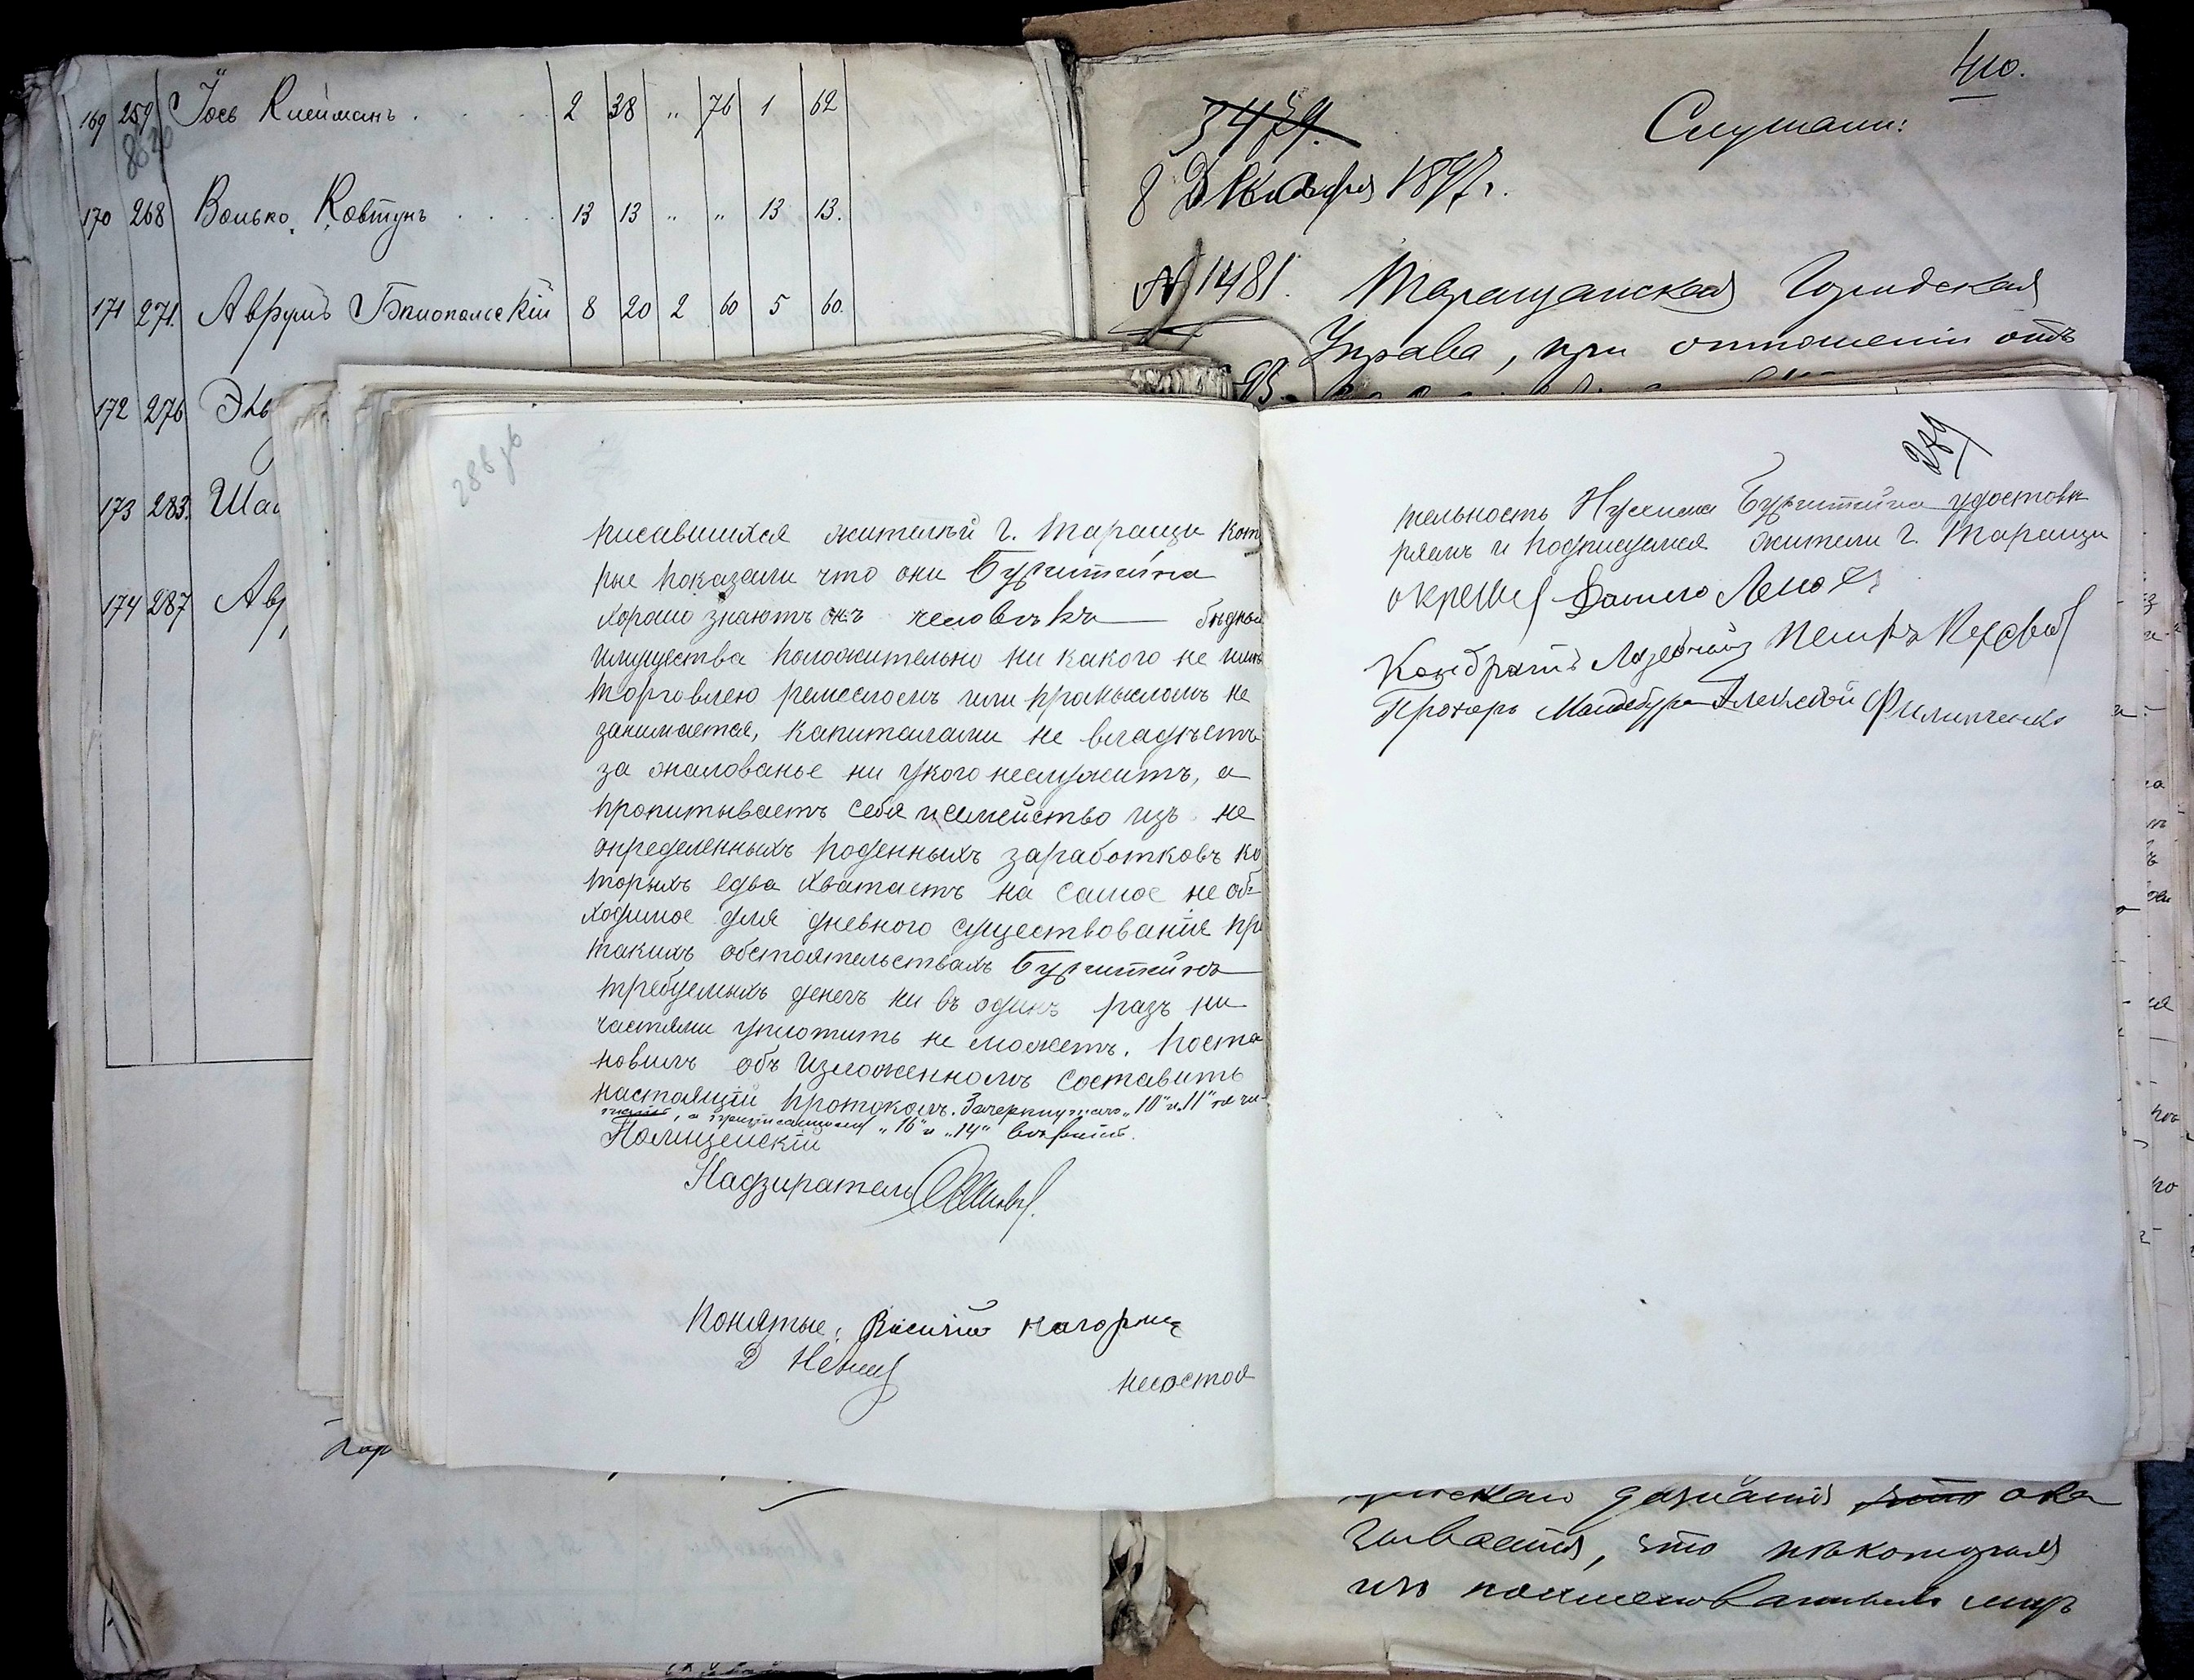 169 259 Іось Клейманъ . . . 2 38 " 76 1 62
170 268 Волько Ковтунъ . . . 13 13 " " 13 13.
171 271. Аврумъ Бялопольскій 8 20 2 60 5 60.
172 276
173 283.
174 287
410.
3479.
Слушали:
8 Декабря 1897 г.
№ 1481. Таращанская Городская
Управа, при отношеніи отъ
93.
288 об
писавшихся жителей г. Таращи кото
рые показали что они Бурштейна
хорошо знаютъ онъ человѣкъ бѣдный
имущества положительно ни какого не имѣ
торговлею ремесломъ или промысломъ не
занимается, капиталами не владѣетъ
за жалованье ни укого неслужитъ, а
пропитываетъ себя и семейство изъ не
определенныхъ поденныхъ заработковъ ко
торыхъ едва хватаетъ на самое не об=
ходимое для дневного существованія при
такихъ обстоятельствахъ Бурштейнъ
требуемыхъ денегъ ни въ одинъ разъ ни
частями уплотить не можетъ. Поста
новилъ объ изложенномъ составить
настоящій протоколъ. Зачеркнутому "10" и "11" не чи-
"16" и "14" вѣрить.
Полицейскій
Надзиратель
Понятые: Василій Нагорны
несостоя
289
тельность Нусима Бурштейна удостовѣ
ряемъ и подписуемся жители г. Таращи
Кондратъ Петръ
Прохоръ Алексѣй Филипченко
дознанія это ока
зывается, что нѣкоторыя
изъ поименованныхъ